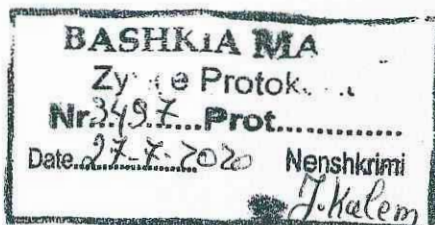 BASHKIA MA
Zy e Protok
Nr. 3497 Prot.............
Date 27-7-2020 Nenshkrimi
J. Kalem